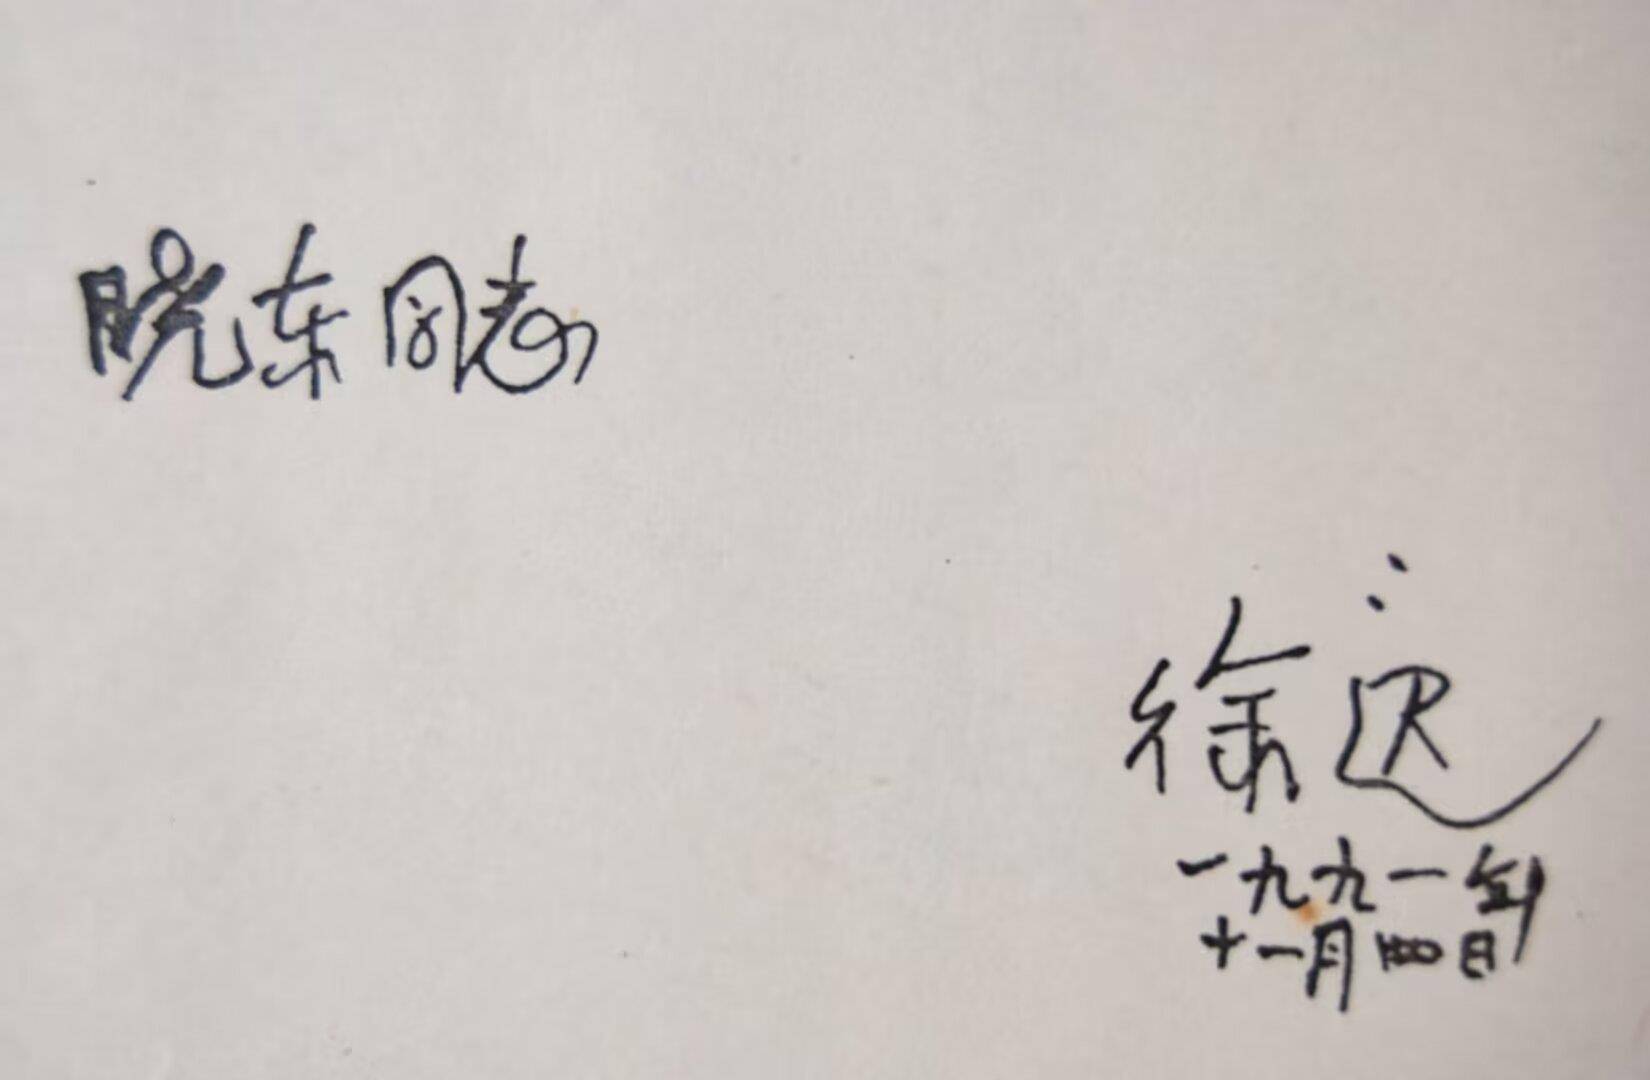 晓东同志
徐迟
一九九一年
十一月四日